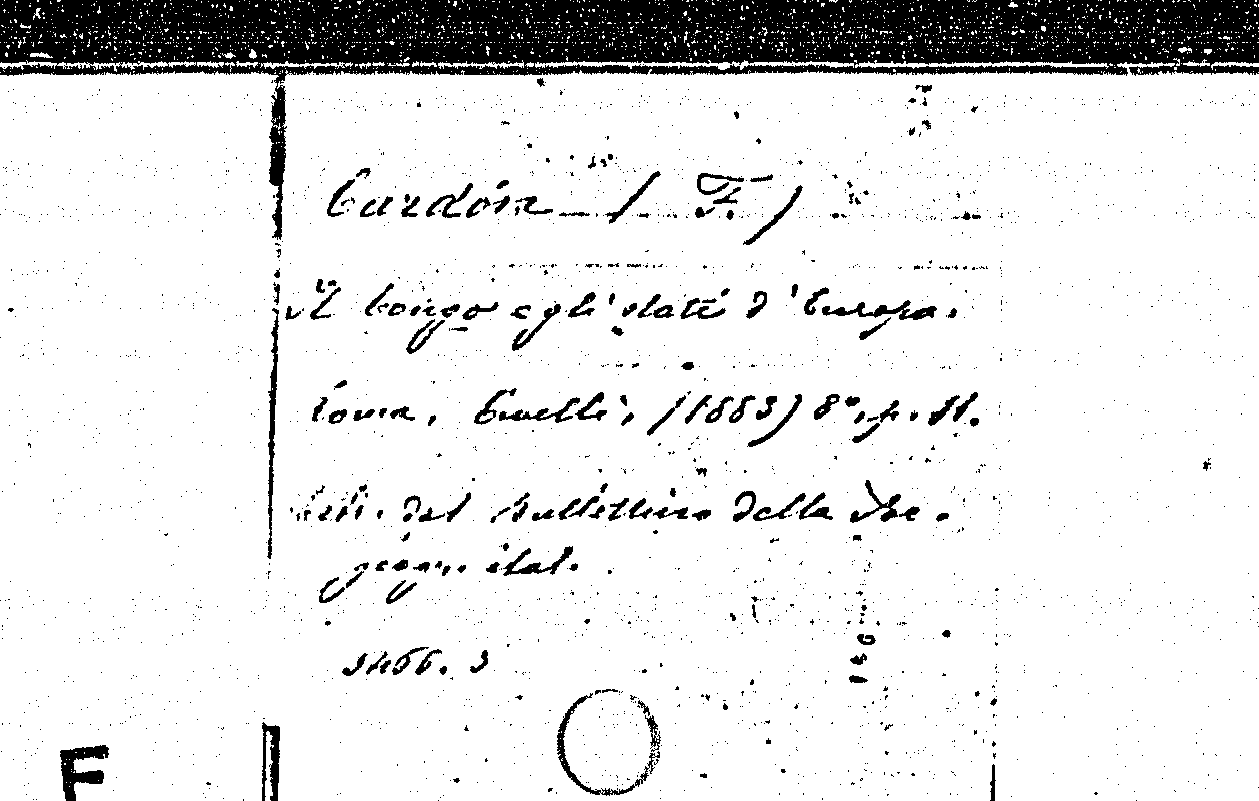 Cardon (F.)
Il Congo e gli stati d'Europa.
Roma, Civelli, (1883) 8°, p. 11.
del Bullettino della Soc.
geogr. ital.
5466. 3
F